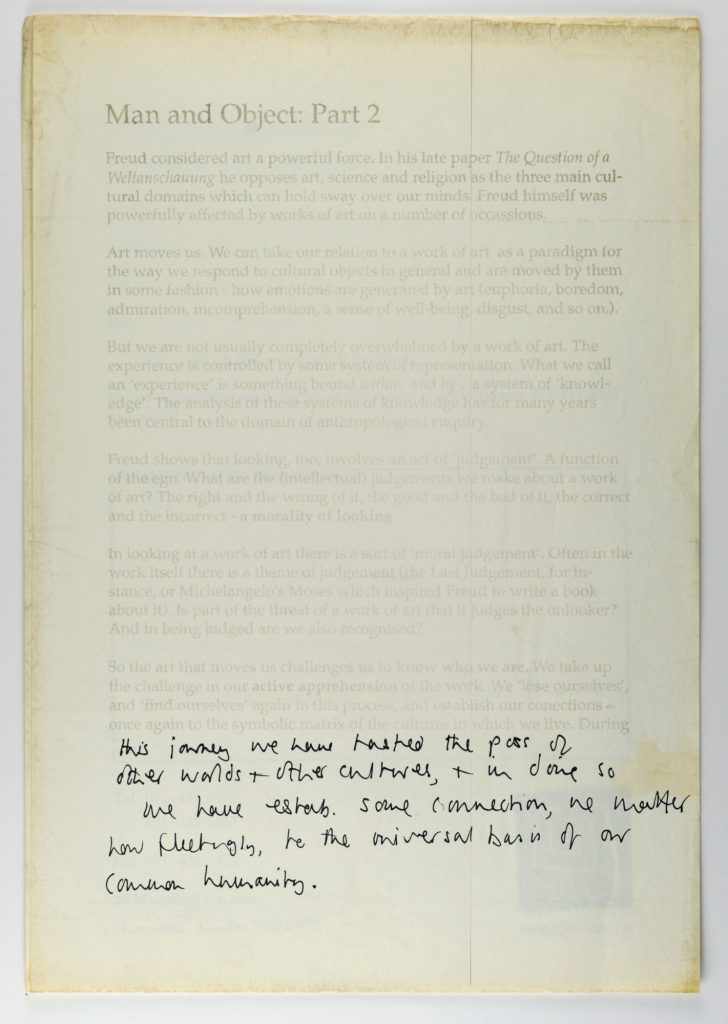 Man and Object: Part 2
Freud considered art a powerful force. In his late paper The Question of a
Weltanschauung he opposes art, science and religion as the three main cul-
tural domains which can hold sway over our minds. Freud himself was
powerfully affected by works of art on a number of occassions.
Art moves us. We can take our relation to a work of art as a paradigm for
the way we respond to cultural objects in general and are moved by them
in some fashion - how emotions are generated by art (euphoria, boredom,
admiration, incomprehension, a sense of well-being, disgust, and so on.).
But we are not usually completely overwhelmed by a work of art. The
experience is controlled by some system of representation. What we call
an 'experience' is something bound within and by , a system of 'knowl-
edge'. The analysis of these systems of knowledge has for many years
been central to the domain of anthropological enquiry.
Freud shows that looking, too, involves an act of 'judgement'. A function
of the ego. What are the (intellectual) judgements we make about a work
of art? The right and the wrong of it, the good and the bad of it, the correct
and the incorrect - a morality of looking.
In looking at a work of art there is a sort of 'moral judgement'. Often in the
work itself there is a theme of judgement (the Last Judgement, for in-
stance, or Michelangelo's Moses which inspired Freud to write a book
about it). Is part of the threat of a work of art that it judges the onlooker?
And in being judged are we also recognised?
So the art that moves us challenges us to know who we are. We take up
the challenge in our active apprehension of the work. We 'lose ourselves',
and 'find ourselves' again in this process, and establish our conections -
once again to the symbolic matrix of the cultures in which we live. During
this journey we have tasted the poss of
other worlds + other cultures, + in doing so
we have estab. some connection, no matter
how fleetingly, to the universal basis of our
common humanity.